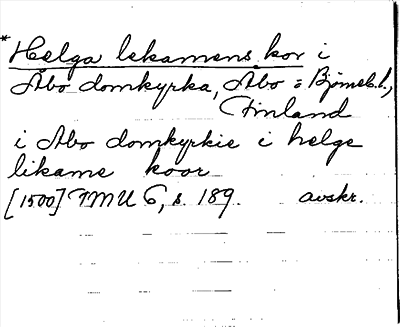 *Helga lekamens kor i
Åbo domkyrka, Åbo o Björneb. l.,
Finland
i Abo domkyrkie i helge
likame koor
[1500] FMU 6, s. 189. avskr.